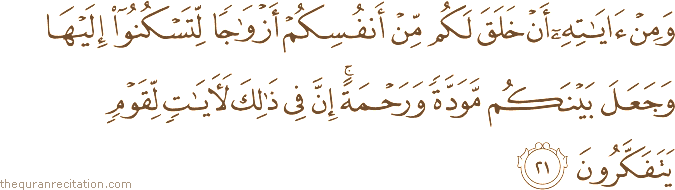 وَمِنْ ءَايَـٰتِهِۦٓ أَنْ خَلَقَ لَكُم مِّنْ أَنفُسِكُمْ أَزْوَٰجًا لِّتَسْكُنُوٓا۟ إِلَيْهَا
وَجَعَلَ بَيْنَكُم مَّوَدَّةً وَرَحْمَةً ۚ إِنَّ فِى ذَٰلِكَ لَـَٔايَـٰتٍ لِّقَوْمٍ
يَتَفَكَّرُونَ ٢١
thequranrecitation.com